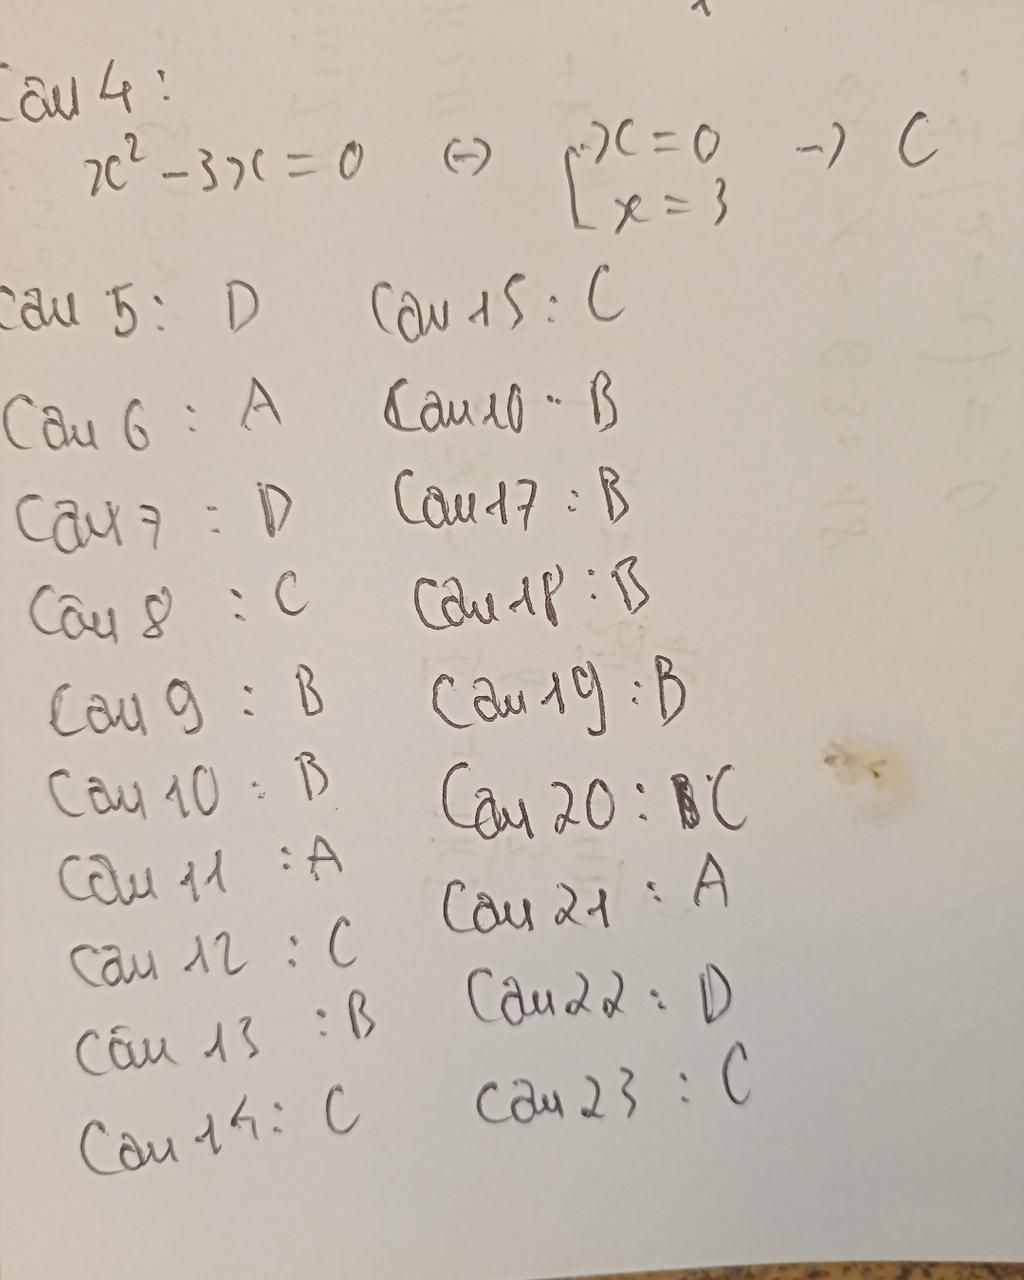 Câu 4:
x² - 3x = 0 <=> [ x = 0 -> C
x = 3
Câu 5: D
Câu 6: A
Câu 7: D
Câu 8: C
Câu 9: B
Câu 10: B
Câu 11: A
Câu 12: C
Câu 13: B
Câu 14: C
Câu 15: C
Câu 16: B
Câu 17: B
Câu 18: B
Câu 19: B
Câu 20: C
Câu 21: A
Câu 22: D
Câu 23: C